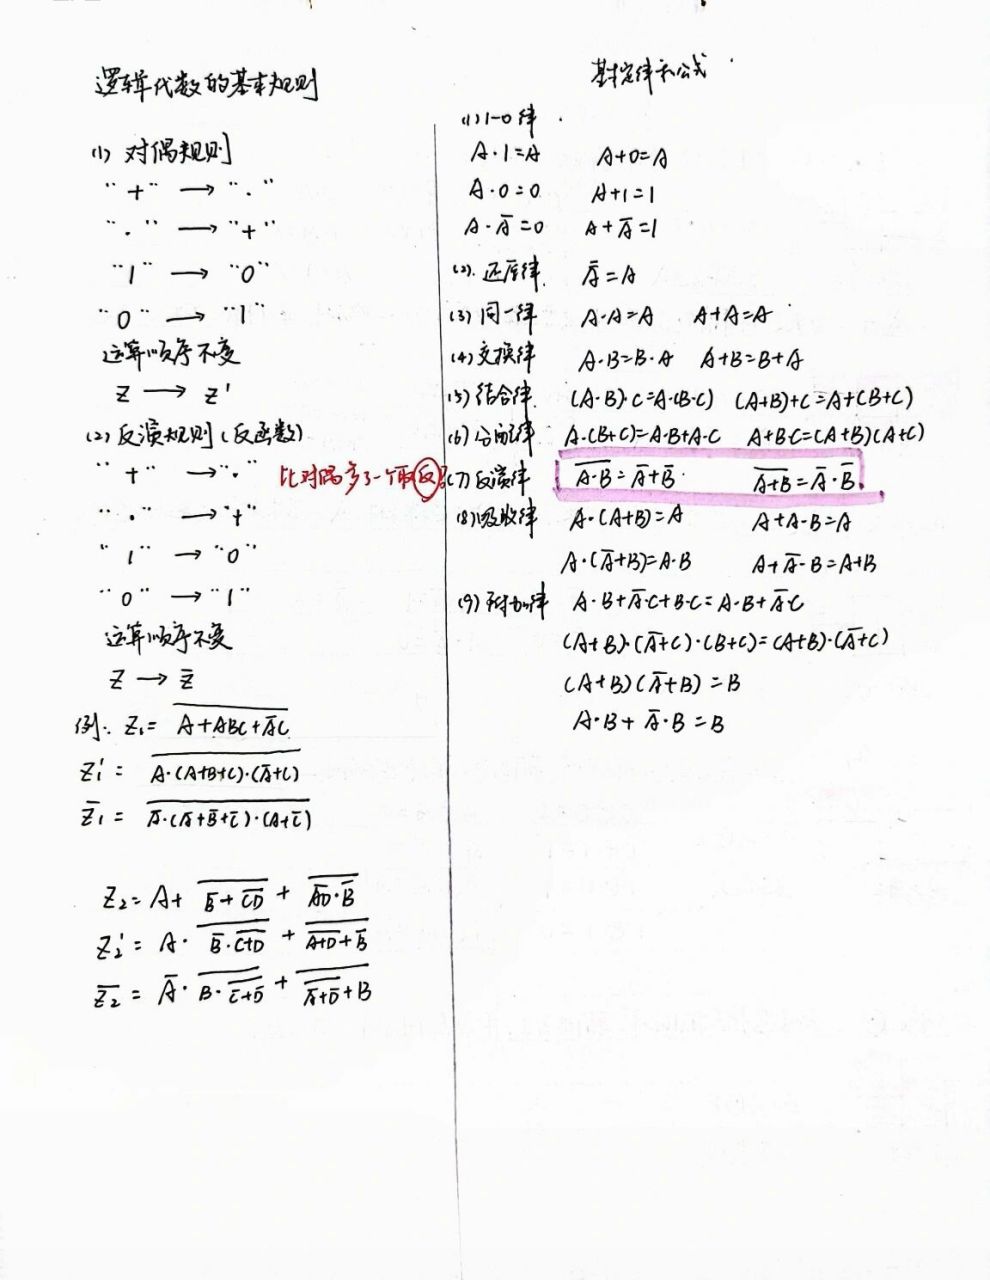 逻辑代数的基本规则
(1) 对偶规则
"+" → "·"
"·" → "+"
"1" → "0"
"0" → "1"
运算顺序不变
Z → Z'
(2) 反演规则 (反函数)
"+" → "·"
比对偶多了一个取反!
"·" → "+"
"1" → "0"
"0" → "1"
运算顺序不变
Z → Z̅
例: Z₁ = \overline{A+ABC+\overline{A}C}
Z₁' = \overline{A·(A+B+C)·(\overline{A}+C)}
\overline{Z₁} = \overline{\overline{A}·(\overline{A}+\overline{B}+\overline{C})·(A+\overline{C})}
Z₂ = A + \overline{\overline{B}+\overline{CD}} + \overline{\overline{AD}·\overline{B}}
Z₂' = A · \overline{\overline{B}·\overline{C+D}} + \overline{\overline{A+D}+\overline{B}}
\overline{Z₂} = \overline{A} · \overline{B·\overline{\overline{C}+\overline{D}}} + \overline{\overline{\overline{A}+\overline{D}}+B}
基本定律和公式
(1) 1-0律
A·1=A A+0=A
A·0=0 A+1=1
A·A̅=0 A+A̅=1
(2). 还原律 A̅=A
(3) 同一律 A·A=A A+A=A
(4) 交换律 A·B=B·A A+B=B+A
(5) 结合律 (A·B)·C=A·(B·C) (A+B)+C=A+(B+C)
(6) 分配律 A·(B+C)=A·B+A·C A+BC=(A+B)(A+C)
(7) 反演律 \overline{A·B}=A̅+B̅ \overline{A+B}=A̅·B̅
(8) 吸收律 A·(A+B)=A A+A·B=A
A·(A̅+B)=A·B A+A̅·B=A+B
(9) 附加律 A·B+A̅·C+B·C=A·B+A̅·C
(A+B)·(A̅+C)·(B+C)=(A+B)·(A̅+C)
(A+B)(A̅+B)=B
A·B+A̅·B=B